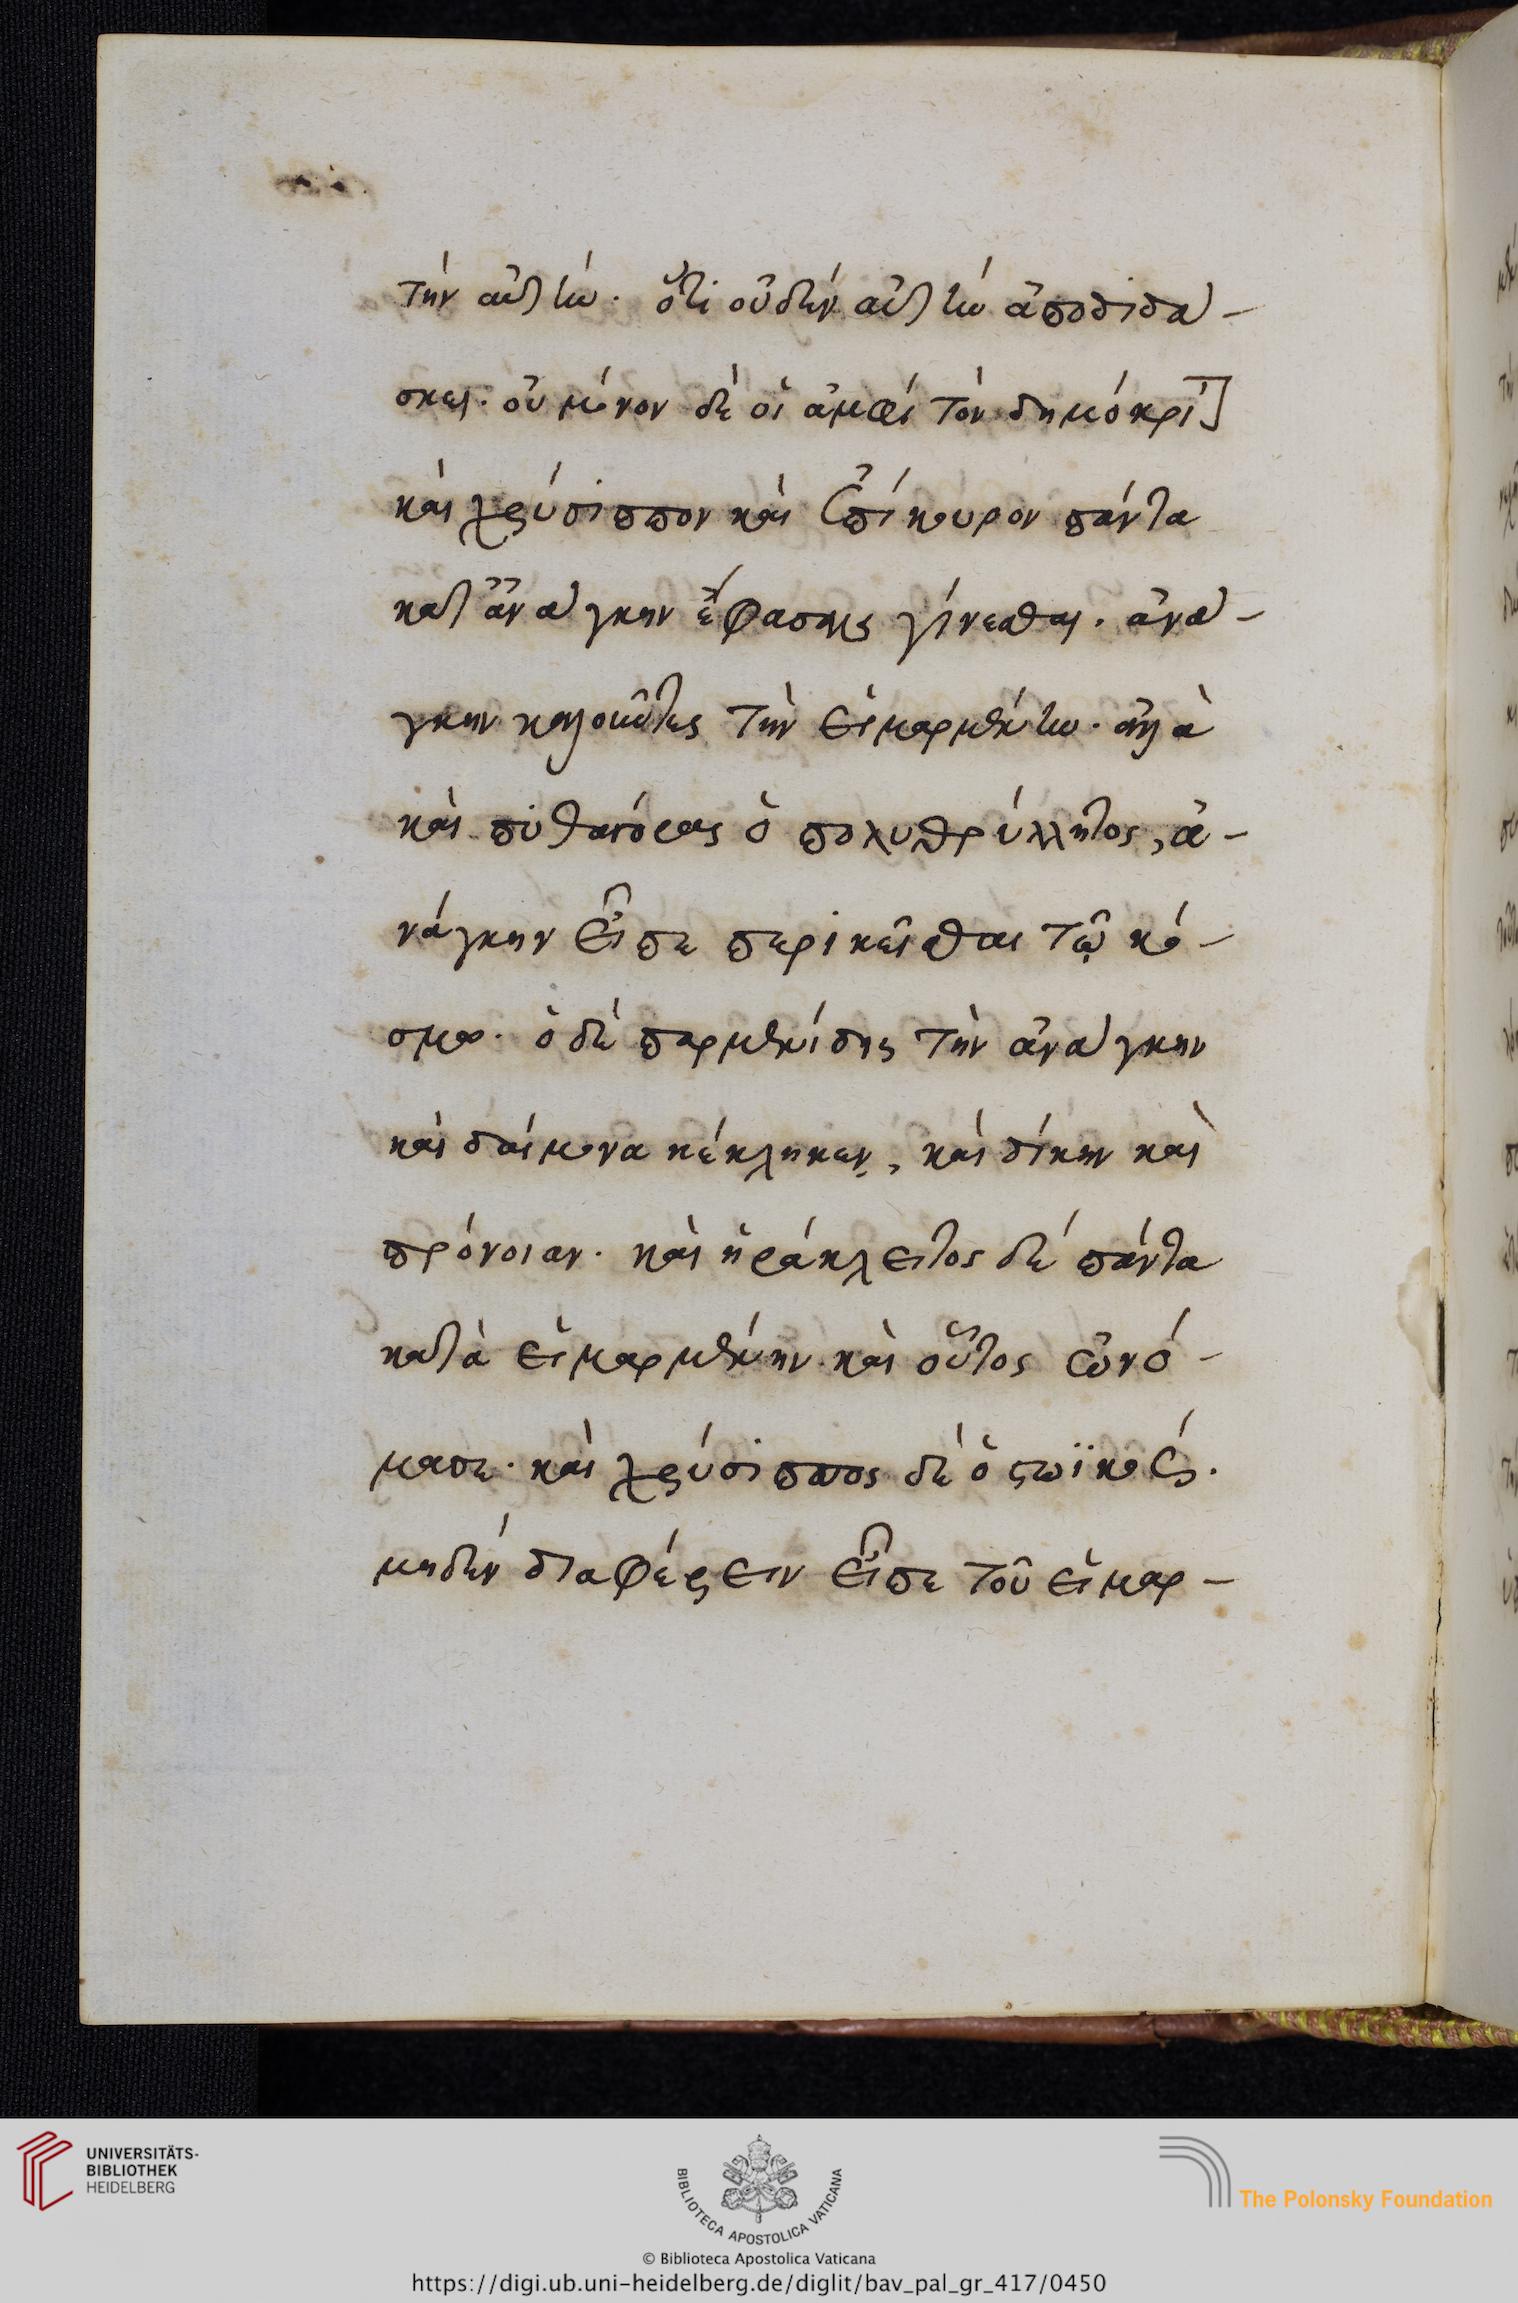 τὴν αὐτὴν. ὅτι οὐδὲν αὐτὴν ἀποδιδά-
σκει. οὐ μόνον δὲ οἱ ἀμφὶ τὸν δημόκριτ
καὶ χρύσιππον καὶ ἐπίκουρον πάντα
κατ' ἀνάγκην ἔφασαν γίνεσθαι. ἀνά-
γκην καλοῦντες τὴν εἱμαρμένην. ἀλλὰ
καὶ πυθαγόρας ὁ πολυθρύλλητος, ἀ-
νάγκην εἶπε περικεῖσθαι τῷ κό-
σμω. ὁ δὲ παρμενίδης τὴν ἀνάγκην
καὶ δαίμονα κέκληκεν, καὶ δίκην καὶ
πρόνοιαν. καὶ ἡράκλειτος δὲ πάντα
κατὰ εἱμαρμένην. καὶ οὗτος ὠνό-
μασε. καὶ χρύσιππος δὲ ὁ στωϊκός.
μηδὲν διαφέρειν εἶπε τοῦ εἱμαρ-
UNIVERSITÄTS-
BIBLIOTHEK
HEIDELBERG
BIBLIOTECA APOSTOLICA VATICANA
The Polonsky Foundation
© Biblioteca Apostolica Vaticana
https://digi.ub.uni-heidelberg.de/diglit/bav_pal_gr_417/0450